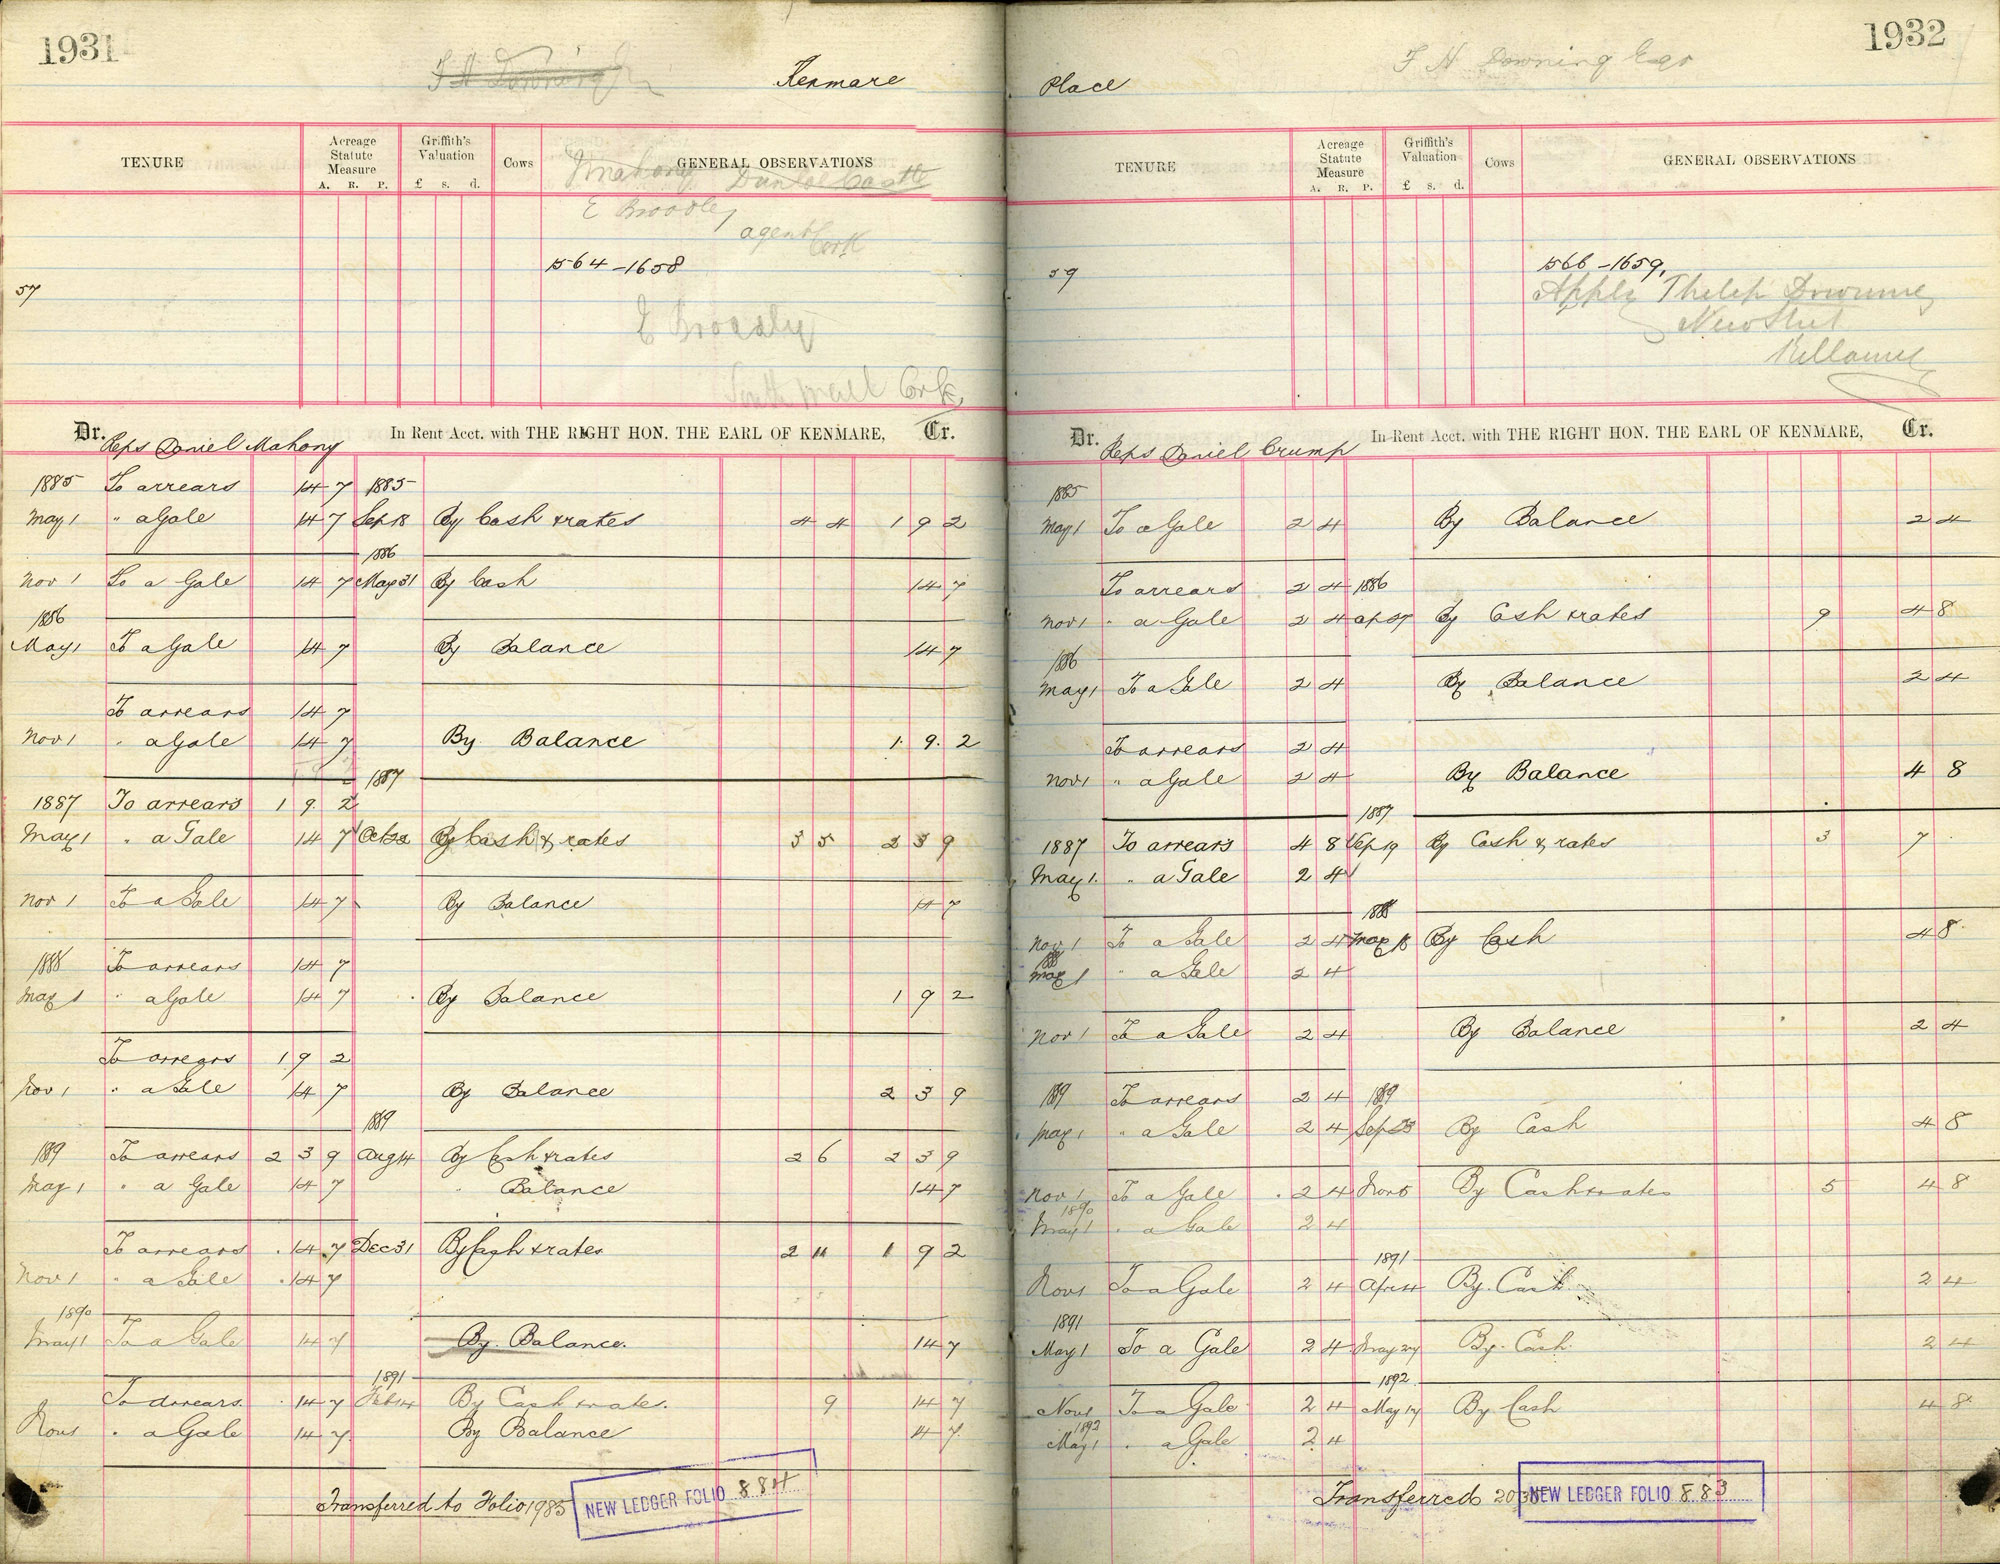 1931
F H Downing
Kenmare
TENURE
Acreage Statute Measure
A. R. P.
Griffith's Valuation
£ s. d.
Cows
GENERAL OBSERVATIONS
Mahony Dunloe Castle
E Broadley
agent Cork
57
1564-1658
E Broadley
South Mall Cork,
Dr. Reps Daniel Mahony In Rent Acct. with THE RIGHT HON. THE EARL OF KENMARE, Cr.
1885 To arrears 14 7 1885
May 1 " a Gale 14 7 Sep 18 By Cash & rates 4 4 1 9 2
1886
Nov 1 To a Gale 14 7 May 31 By Cash 14 7
1886
May 1 To a Gale 14 7 By Balance 14 7
To arrears 14 7
Nov 1 " a Gale 14 7 By Balance 1. 9. 2
1887
1887 To arrears 1 9 2
May 1 " a Gale 14 7 Oct 22 By Cash & rates 3 5 2 3 9
Nov 1 To a Gale 14 7 By Balance 14 7
1888 To arrears 14 7
May 1 " a Gale 14 7 By Balance 1 9 2
To arrears 1 9 2
Nov 1 " a Gale 14 7 By Balance 2 3 9
1889
1889 To arrears 2 3 9 Aug 14 By Cash & rates 2 6 2 3 9
May 1 " a Gale 14 7 " Balance 14 7
To arrears 14 7 Dec 31 By Cash & rates 2 11 1 9 2
Nov 1 " a Gale 14 7
1890
May 1 To a Gale 14 7 By Balance. 14 7
1891
To arrears 14 7 Feb 14 By Cash & rates. 9 14 7
Nov 1 " a Gale 14 7 By Balance 14 7
Transferred to Folio 1985
NEW LEDGER FOLIO 884
1932
F H Downing Esqr
Place
TENURE
Acreage Statute Measure
A. R. P.
Griffith's Valuation
£ s. d.
Cows
GENERAL OBSERVATIONS
59
1566-1659,
Apply Philip Downing
New Street
Killarney
Dr. Reps Daniel Crump In Rent Acct. with THE RIGHT HON. THE EARL OF KENMARE, Cr.
1885
May 1 To a Gale 2 4 By Balance 2 4
To arrears 2 4 1886
Nov 1 " a Gale 2 4 Ap 27 By Cash & rates 9 4 8
1886
May 1 To a Gale 2 4 By Balance 2 4
To arrears 2 4
Nov 1 " a Gale 2 4 By Balance 4 8
1887
1887 To arrears 4 8 Sep 19 By Cash & rates 3 7
May 1. " a Gale 2 4
1888
Nov 1 To a Gale 2 4 May 18 By Cash 4 8
1888
May 1 " a Gale 2 4
Nov 1 To a Gale 2 4 By Balance 2 4
1889 To arrears 2 4 1889
May 1 " a Gale 2 4 Sep 23 By Cash 4 8
Nov 1 To a Gale 2 4 Nov 5 By Cash & rates 5 4 8
1890
May 1 " a Gale 2 4
1891
Nov 1 To a Gale 2 4 Apr 14 By Cash 2 4
1891
May 1 To a Gale 2 4 May 27 By Cash 2 4
1892
Nov 1 To a Gale 2 4 May 17 By Cash 4 8
1892
May 1 " a Gale 2 4
Transferred
NEW LEDGER FOLIO 883